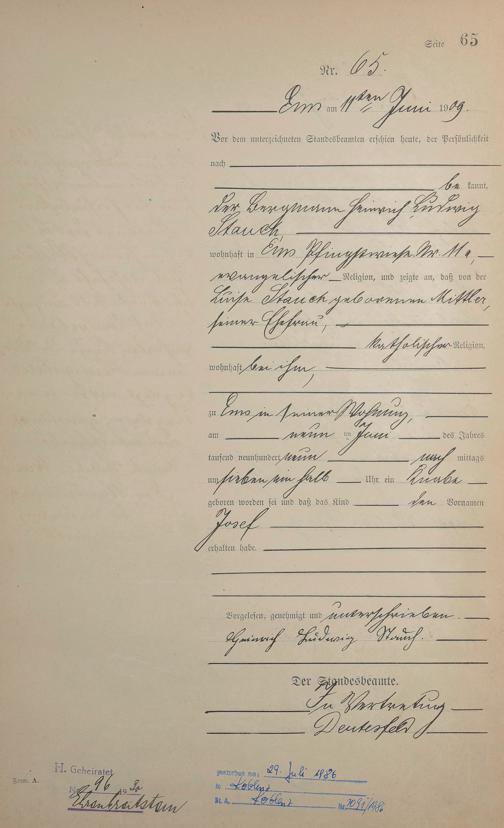 Seite 65
Nr. 65.
Ems am 11ten Juni 1909.
Vor dem unterzeichneten Standesbeamten erschien heute, der Persönlichkeit
nach
be kannt,
der Bergmann Heinrich Ludwig
Stauch,
wohnhaft in Ems Pfingstwiese Nr. 11
evangelischer Religion, und zeigte an, daß von der
Luise Stauch geborenen Mittler,
seiner Ehefrau,
katholischer Religion,
wohnhaft bei ihm,
zu Ems in seiner Wohnung,
am neun ten Juni des Jahres
tausend neunhundert neun nach mittags
um sieben ein halb Uhr ein Knabe
geboren worden sei und daß das Kind den Vornamen
Josef
erhalten habe.
Vorgelesen, genehmigt und unterschrieben.
Heinrich Ludwig Stauch.
Der Standesbeamte.
In Vertretung
H. Geheiratet
Nr. 96 1930
Form. A.
gestorben am: 29. Juli 1986
in Koblenz
St. A. Koblenz Nr.